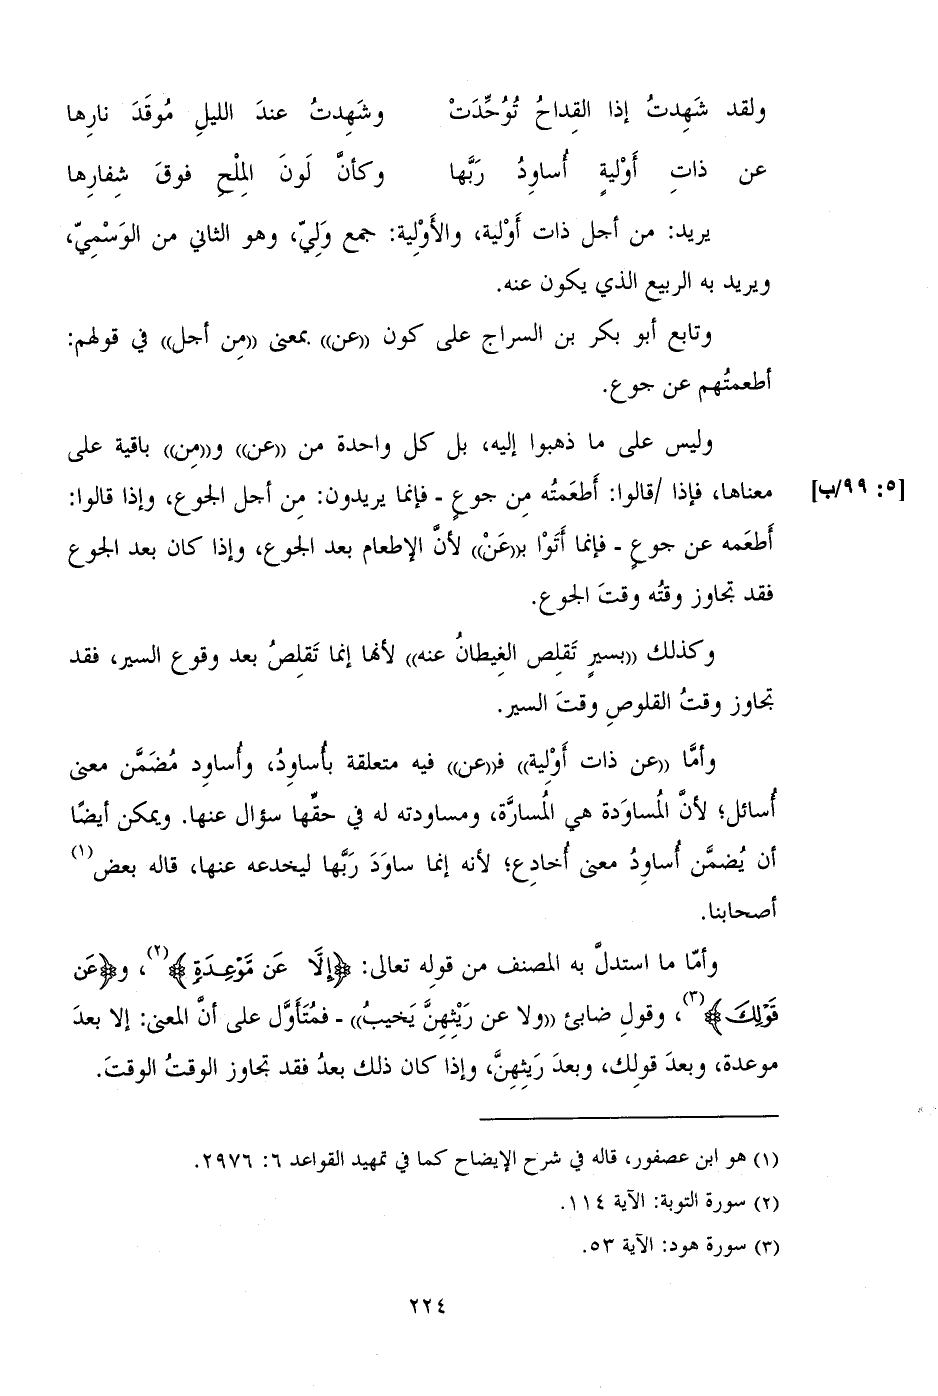 ولقد شَهِدتُ إذا القِداحُ تُوُحِّدَتْ وشَهِدتُ عندَ الليلِ مُوقَدَ نارِها
عن ذاتِ أَوْلِيةٍ أُساوِدُ رَبَّها وكأنَّ لَونَ المِلْحِ فوقَ شِفارِها
يريد: من أجل ذات أَوْلية، والأَوْلِية: جمع وَلِيّ، وهو الثاني من الوَسْمِيّ،
ويريد به الربيع الذي يكون عنه.
وتابع أبو بكر بن السراج على كون ((عن)) بمعنى ((مِن أجل)) في قولهم:
أطعمتُهم عن جوع.
وليس على ما ذهبوا إليه، بل كل واحدة من ((عن)) و((مِن)) باقية على
معناها، فإذا /قالوا: أَطعَمتُه مِن جوعٍ - فإنما يريدون: مِن أجل الجوع، وإذا قالوا: [٥: ٩٩/ب]
أَطعَمه عن جوعٍ - فإنما أَتَوْا بـ((عَنْ)) لأنَّ الإطعام بعد الجوع، وإذا كان بعد الجوع
فقد تجاوز وقتُه وقتَ الجوع.
وكذلك ((بسيرٍ تَقلِص الغِيطانُ عنه)) لأنها إنما تَقلِصُ بعد وقوع السير، فقد
تجاوز وقتُ القلوصِ وقتَ السير.
وأمَّا ((عن ذات أَوْلِية)) فـ((عن)) فيه متعلقة بأُساوِدُ، وأُساوِد مُضَمَّن معنى
أُسائل؛ لأنَّ المُساوَدة هي المُسارَّة، ومساودته له في حقِّها سؤال عنها. ويمكن أيضًا
أن يُضمَّن أُساوِدُ معنى أُخادِع؛ لأنه إنما ساوَدَ رَبَّها ليخدعه عنها، قاله بعض(١)
أصحابنا.
وأمّا ما استدلَّ به المصنف من قوله تعالى: ﴿إِلَّا عَن مَّوْعِدَةٍ﴾(٢)، و﴿عَن
قَوْلِكَ﴾(٣)، وقولِ ضابئ ((ولا عن رَيْثِهِنَّ يَخيبُ)) - فمُتَأَوَّل على أنَّ المعنى: إلا بعدَ
موعدة، وبعدَ قولِك، وبعدَ رَيثِهنَّ، وإذا كان ذلك بعدُ فقد تجاوز الوقتُ الوقتَ.
(١) هو ابن عصفور، قاله في شرح الإيضاح كما في تمهيد القواعد ٦: ٢٩٧٦.
(٢) سورة التوبة: الآية ١١٤.
(٣) سورة هود: الآية ٥٣.
٢٢٤